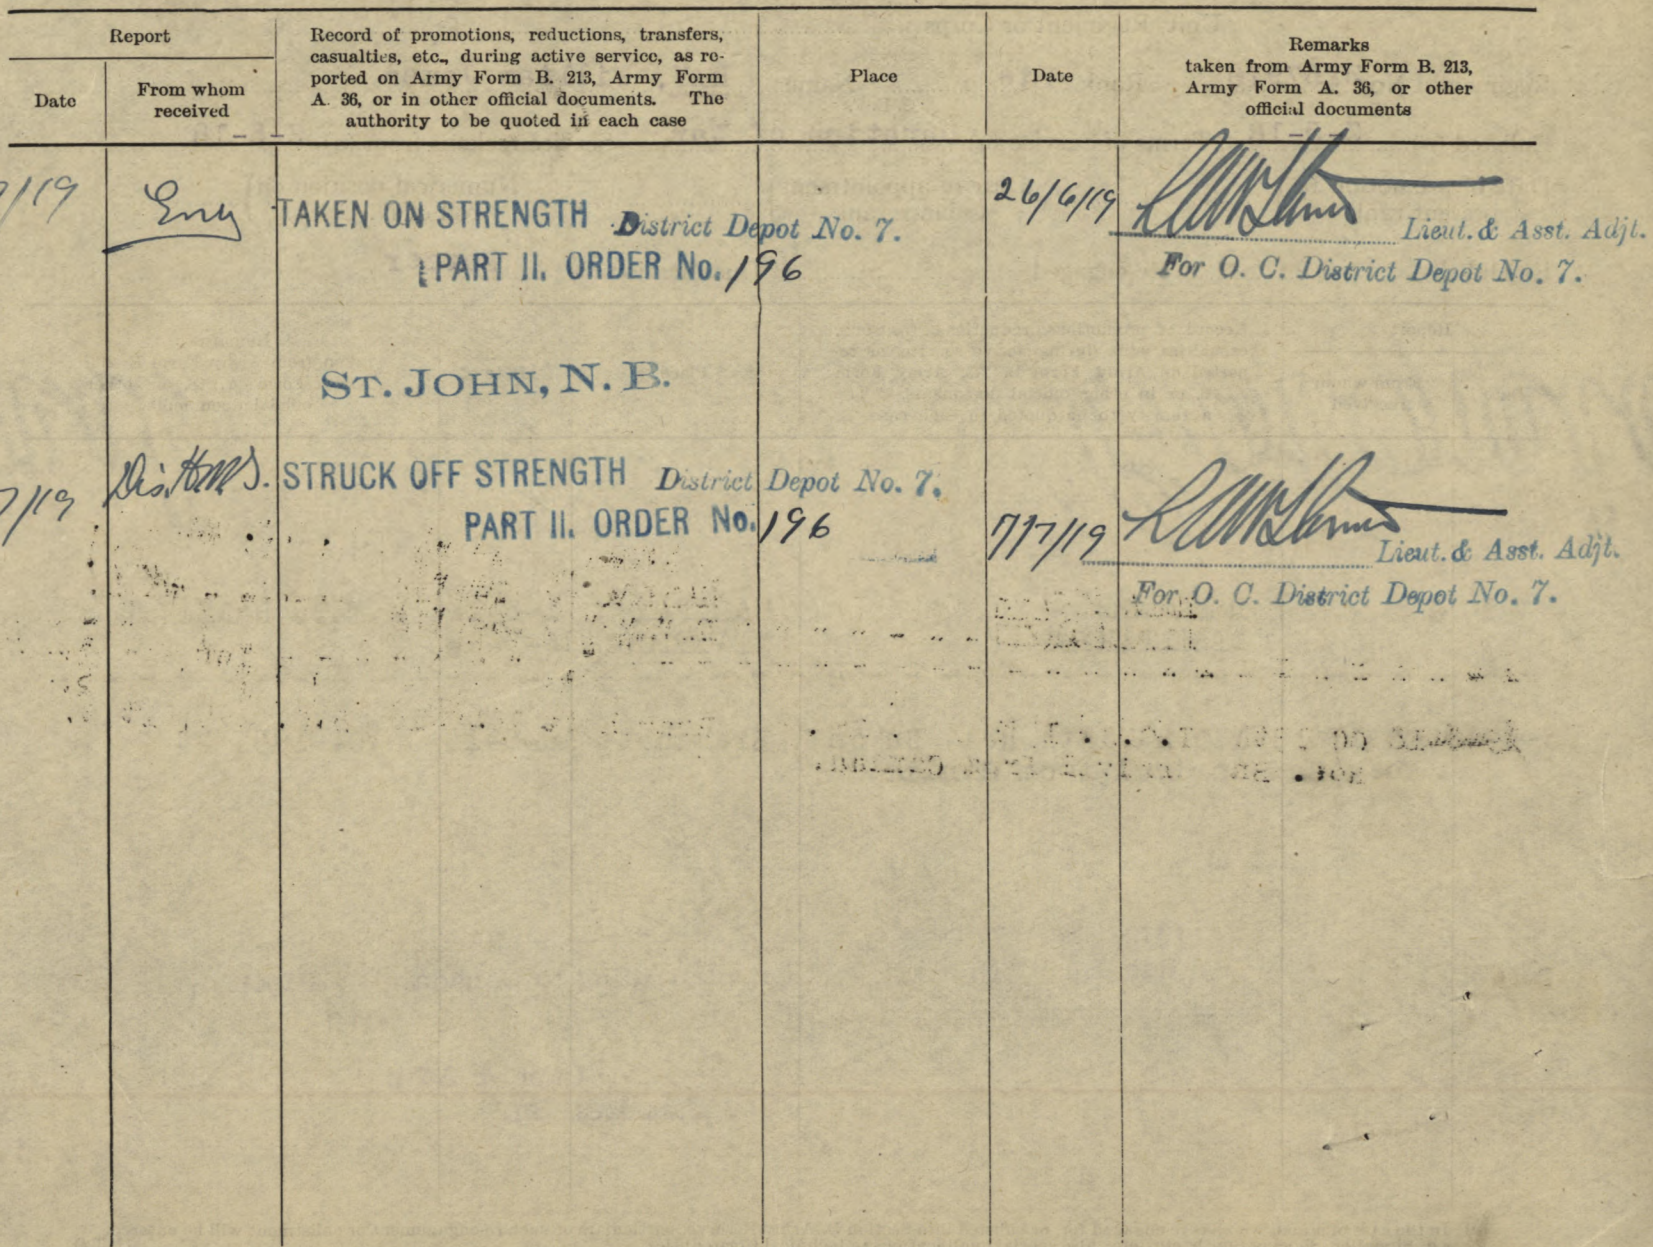 Report
Date
From whom
received
Record of promotions, reductions, transfers,
casualties, etc., during active service, as re-
ported on Army Form B. 213, Army Form
A. 36, or in other official documents. The
authority to be quoted in each case
Place
Date
Remarks
taken from Army Form B. 213,
Army Form A. 36, or other
official documents
/19
TAKEN ON STRENGTH District Depot No. 7.
PART II. ORDER No. 196
26/6/19
Lieut. & Asst. Adjt.
For O. C. District Depot No. 7.
ST. JOHN, N. B.
7/19
STRUCK OFF STRENGTH District Depot No. 7.
PART II. ORDER No. 196
7/7/19
Lieut. & Asst. Adjt.
For O. C. District Depot No. 7.